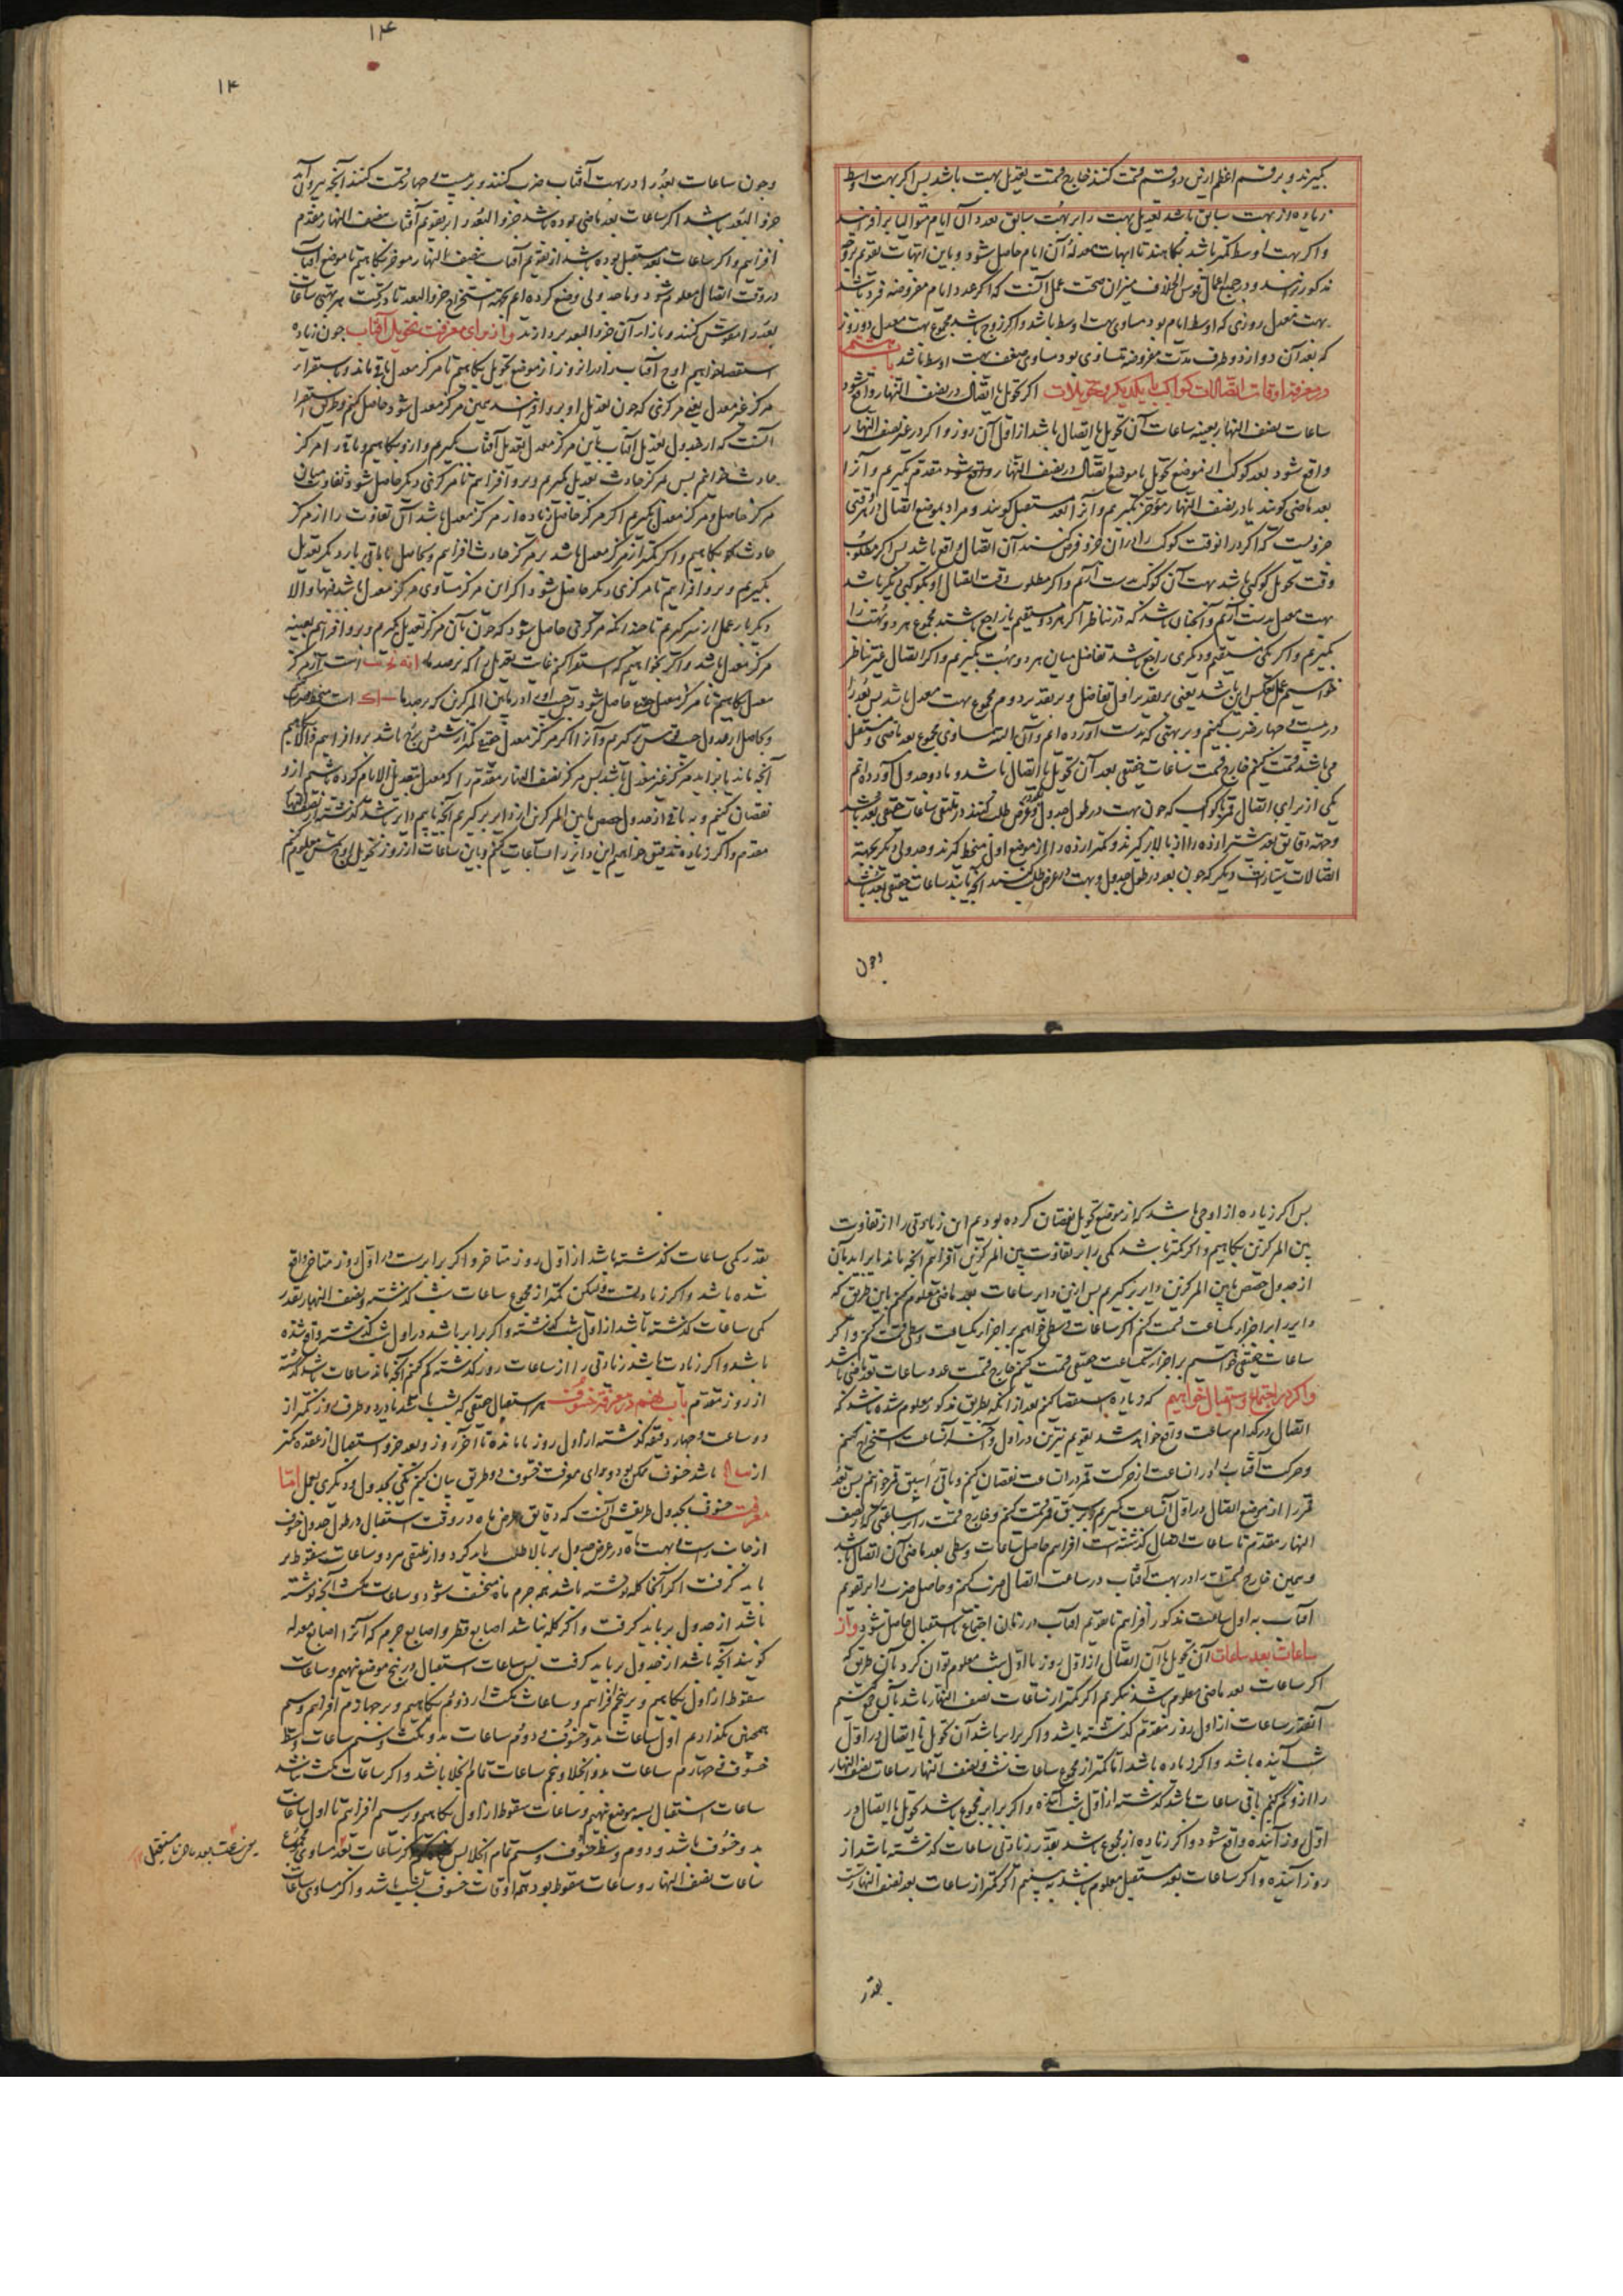 ۱۴
۱۴
گیرند و بر قسم اعظم ازین دو قسم قسمت کنند خارج قسمت تعدیل بهت باشد پس اکر بهت اوسط
زیاده از بهت سابق باشد تعدیل بهت را بر بهت سابق بعدد آن ایام متوالیا بر افزایند
و اکر بهت اوسط کمتر باشد بکاهند تا ابهات معدله آن ایام حاصل شود و باین ابهات تقویم بروجه
مذکور برند و در جمیع اعمال قوس الخلاف میزان صحت عمل آنست که اکر عدد ایام مفروضه فرد باشد
بهت معدل روزی که اوسط ایام بود مساوی بهت اوسط باشد و اکر زوج باشد مجموع بهت معدل دو روز
که بعد آن دو از دو طرف مدت مفروضه تساوی بود مساوی ضعف بهت اوسط باشد باب هشتم
در معرفت اوقات اتصالات کواکب با یکدیکر و تحویلات اکر تحویل یا اتصال در نصف النهار واقع شود
ساعات نصف النهار بعینه ساعات آن تحویل یا اتصال باشد از اول آن روز و اکر در غیر نصف النهار
واقع شود بعد کوکب از موضع تحویل یا موضع اتصال در نصف النهار مقدم بکیریم و آنرا
بعد ماضی کویند یا در نصف النهار مؤخر بکیریم و آنرا بعد مستقبل کویند و مراد بموضع اتصال در هر وقتی
جزویست که اکر در آنوقت کوکب را در آن جزو فرض کنند آن اتصال واقع باشد پس اکر مطلوب
وقت تحویل کوکبی باشد بهت آن کوکب بدست آریم و اکر مطلوب وقت اتصال او بکوکبی دیکر باشد
بهت معدل بدست آریم و آنچنان باشد که در تناظر اکر هر دو مستقیم یا راجع باشند مجموع هر دو بهت را
بکیریم و اکر یکی مستقیم و دیکری راجع باشد تفاضل میان هر دو بهت بکیریم و اکر اتصال غیر تناظر
خواهیم عمل بعکس این باشد یعنی بر تقدیر اول تفاضل و بر تقدیر دوم مجموع بهت معدل باشد پس بعد را
در بیست و چهار ضرب کنیم و بر بهتی که بدست آورده ایم و آن البته مساوی مجموع بعد ماضی و مستقبل
می باشد قسمت کنیم خارج قسمت ساعات حقیقی بعد آن تحویل یا اتصال باشد و ما دو جدول آورده ایم
یکی از برای اتصال قمر با کواکب که چون بهت در طول جدول و بعد در عرض طلب کنند در ملتقی ساعات حقیقی بعد باشد
و جهة دقایق بعد بیشتر از ده را از بالا برکیرند و کمتر از ده را از موضع اول منحط کیرند و جدولی دیکر بجهة
اتصالات ستارات دیکر که چون بعد در طول جدول و بهت در عرض طلب کنند آنچه یابند ساعات حقیقی بعد باشد
وجون
وجون ساعات بعد را در بهت آفتاب ضرب کنند و بر بیست و چهار قسمت کنند آنچه بیرون آید
جزو البعد باشد اکر ساعات بعد ماضی بوده باشد جزو البعد را بر تقویم آفتاب نصف النهار مقدم
افزاییم و اکر ساعات بعد مستقبل بوده باشد از تقویم آفتاب نصف النهار مؤخر بکاهیم تا موضع آفتاب
در وقت اتصال معلوم شود و ما جدولی وضع کرده ایم بجهة استخراج جزو البعد تا در تحت هر بهتی ساعات
بعد را مقوس کنند و بازاء آن جزو البعد بردارند و از برای معرفت تحویل آفتاب چون زیاده
استقصا خواهیم اوج آفتاب را در آنروز از موضع تحویل بکاهیم تا مرکز معدل باقی ماند و باستقراء
مرکز غیر معدل یعنی مرکزی که چون تعدیل او برو افزایند همین مرکز معدل شود حاصل کنیم و طریق استقرا
آنست که از جدول تعدیل آفتاب باین مرکز معدل تعدیل آفتاب بکیریم و ازو بکاهیم و باقی را مرکز
حادث نام نهیم پس مرکز حادث تعدیل بکیریم و برو افزاییم تا مرکزی دیکر حاصل شود و تفاوت میان
مرکز حاصل و مرکز معدل بکیریم اکر مرکز حاصل زیاده از مرکز معدل باشد آن تفاوت را از مرکز
حادث بکاهیم و اکر کمتر از مرکز معدل باشد بر مرکز حادث افزاییم و بحاصل یا باقی بار دیکر تعدیل
بکیریم و برو افزاییم تا مرکزی دیکر حاصل شود اکر این مرکز مساوی مرکز معدل باشد فبها و الا
دیکر بار عمل از سر کیریم تا حینی که مرکزی حاصل شود که چون بآن مرکز تعدیل بکیریم و برو افزاییم بعینه
مرکز معدل باشد
معدل بکاهیم تا مرکز معدل حقیقی حاصل شود
آنچه باند یا بزاید مرکز غیر معدل باشد پس مرکز نصف النهار مقدم را که معدل بتعدیل الایام کرده باشیم ازو
نقصان کنیم و به باقی از جدول حصص ما بین المرکزین از دایر برکیریم آنچه یابیم دایر باشد کذشته از نصف النهار
مقدم و اکر زیاده تدقیق خواهیم این دایر را ساعات کنیم و باین ساعات از روز تحویل اوج شمس معلوم کنیم
پس اکر زیاده از اوجی باشد که از موضع تحویل نقصان کرده بودیم این زیادتی را از تفاوت
بین المرکزین بکاهیم و اکر کمتر باشد کمی را بر تفاوت بین المرکزین افزاییم آنچه ماند یا برآید بآن
از جدول حصص ما بین المرکزین دایر برکیریم پس ازین دایر ساعات بعد ماضی معلوم کنیم باین طریق که
دایر را بر اجزاء یکساعت قسمت کنیم اکر ساعات وسطی خواهیم بر اجزاء یکساعت وسطی قسمت کنیم و اکر
ساعات حقیقی خواهیم بر اجزاء یکساعت حقیقی قسمت کنیم خارج قسمت عدد ساعات بعد ماضی باشد
و اکر در اجتماع و استقبال خواهیم که زیاده استقصا کنیم بعد از آنکه بطریق مذکور معلوم شده باشد که
اتصال در کدام ساعت واقع خواهد شد تقویم نیرین در اول آن ساعت استخراج کنیم
و حرکت آفتاب را در آن ساعت از حرکت قمر در آن ساعت نقصان کنیم و باقی را سبق قمر خوانیم پس بعد
قمر را از موضع اتصال در اول آن ساعت بکیریم و بر سبق قمر قسمت کنیم و خارج قسمت را بر ساعاتی که از نصف
النهار مقدم تا ساعات اتصال کذشته است افزاییم حاصل ساعات وسطی بعد ماضی آن اتصال باشد
و همین خارج قسمت را در بهت آفتاب در ساعت اتصال ضرب کنیم و حاصل ضرب را بر تقویم
آفتاب به اول ساعت مذکور افزاییم تا تقویم آفتاب در زمان اجتماع یا استقبال حاصل شود و از
ساعات بعد ساعات آن تحویل یا آن اتصال از اول روز یا اول شب معلوم توان کرد بآن طریق که
اکر ساعات بعد ماضی معلوم باشد بنکریم اکر کمتر از ساعات نصف النهار باشد بآن جمع کنیم
آنقدر ساعات از اول روز مقدم کذشته باشد و اکر برابر باشد آن تحویل یا اتصال در اول
شب آینده باشد و اکر زیاده باشد اما کمتر از مجموع ساعات شب و نصف النهار ساعات نصف النهار
را ازو کم کنیم باقی ساعات باشد کذشته از اول شب آینده و اکر برابر مجموع باشد تحویل یا اتصال در
اول روز آینده واقع شود و اکر زیاده از مجموع باشد بقدر زیادتی ساعات کذشته باشد از
روز آینده و اکر ساعات بعد مستقبل معلوم باشد ببینیم اکر کمتر از ساعات بعد نصف النهار است
بقدر
بقدر کمی ساعات کذشته باشد از اول روز متاخر و اکر برابرست در اول روز متاخر واقع
شده باشد و اکر زیادتست ولیکن کمتر از مجموع ساعات شب کذشته و نصف النهار بقدر
کمی ساعات کذشته باشد از اول شب کذشته و اکر برابر باشد در اول شب کذشته واقع شده
باشد و اکر زیادت باشد زیادتی را از ساعات روز کذشته کم کنیم آنچه باند ساعات باشد کذشته
از روز مقدم باب نهم در معرفت خسوف هر استقبال حقیقی که بشب باشد یا در دو طرف روز کمتر از
دو ساعت و چهار دقیقه کذشته از اول روز یا مانده تا آخر روز و بعد جزو استقبال از عقده کمتر
از باشد خسوف ممکن بود و برای معرفت خسوف دو طریق بیان کنیم یکی بجدول و دیکری بعمل اما
معرفت خسوف بجدول طریقش آنست که دقایق عرض ماه در وقت استقبال در طول جدول خسوف
از جانب راست و بهت ماه در عرض جدول بر بالا طلب باید کرد و از ملتقی هر دو ساعات سقوط بر
باید کرفت اکر آنجا کله نوشته باشد همه جرم ماه منخسف شود و ساعات مکث آنچه نوشته
باشد از جدول برباید کرفت و اکر کله نباشد اصابع قطر و اصابع جرم که آنرا اصابع معدله
کویند آنچه باشد از جدول برباید کرفت پس ساعات استقبال در پنج موضع نهیم و ساعات
سقوط از اول بکاهیم و بر پنجم افزاییم و ساعات مکث از دوم بکاهیم و بر چهارم افزاییم و سیم
همچنین بکذاریم اول ساعات بدو خسوف و دوم ساعات بدو مکث و سیم ساعات وسط
خسوف و چهارم ساعات بدو انجلا و پنجم ساعات تمام انجلا باشد و اکر ساعات مکث نباشد
ساعات استقبال بسه موضع نهیم و ساعات سقوط از اول بکاهیم و بر سیم افزاییم تا اول ساعات
بدو خسوف باشد و دوم وسط خسوف و سیم تمام انجلا پس اکر ساعات بعد مساوی مجموع
ساعات نصف النهار و ساعات سقوط بود تمام اوقات خسوف بشب باشد و اکر مساوی ساعات